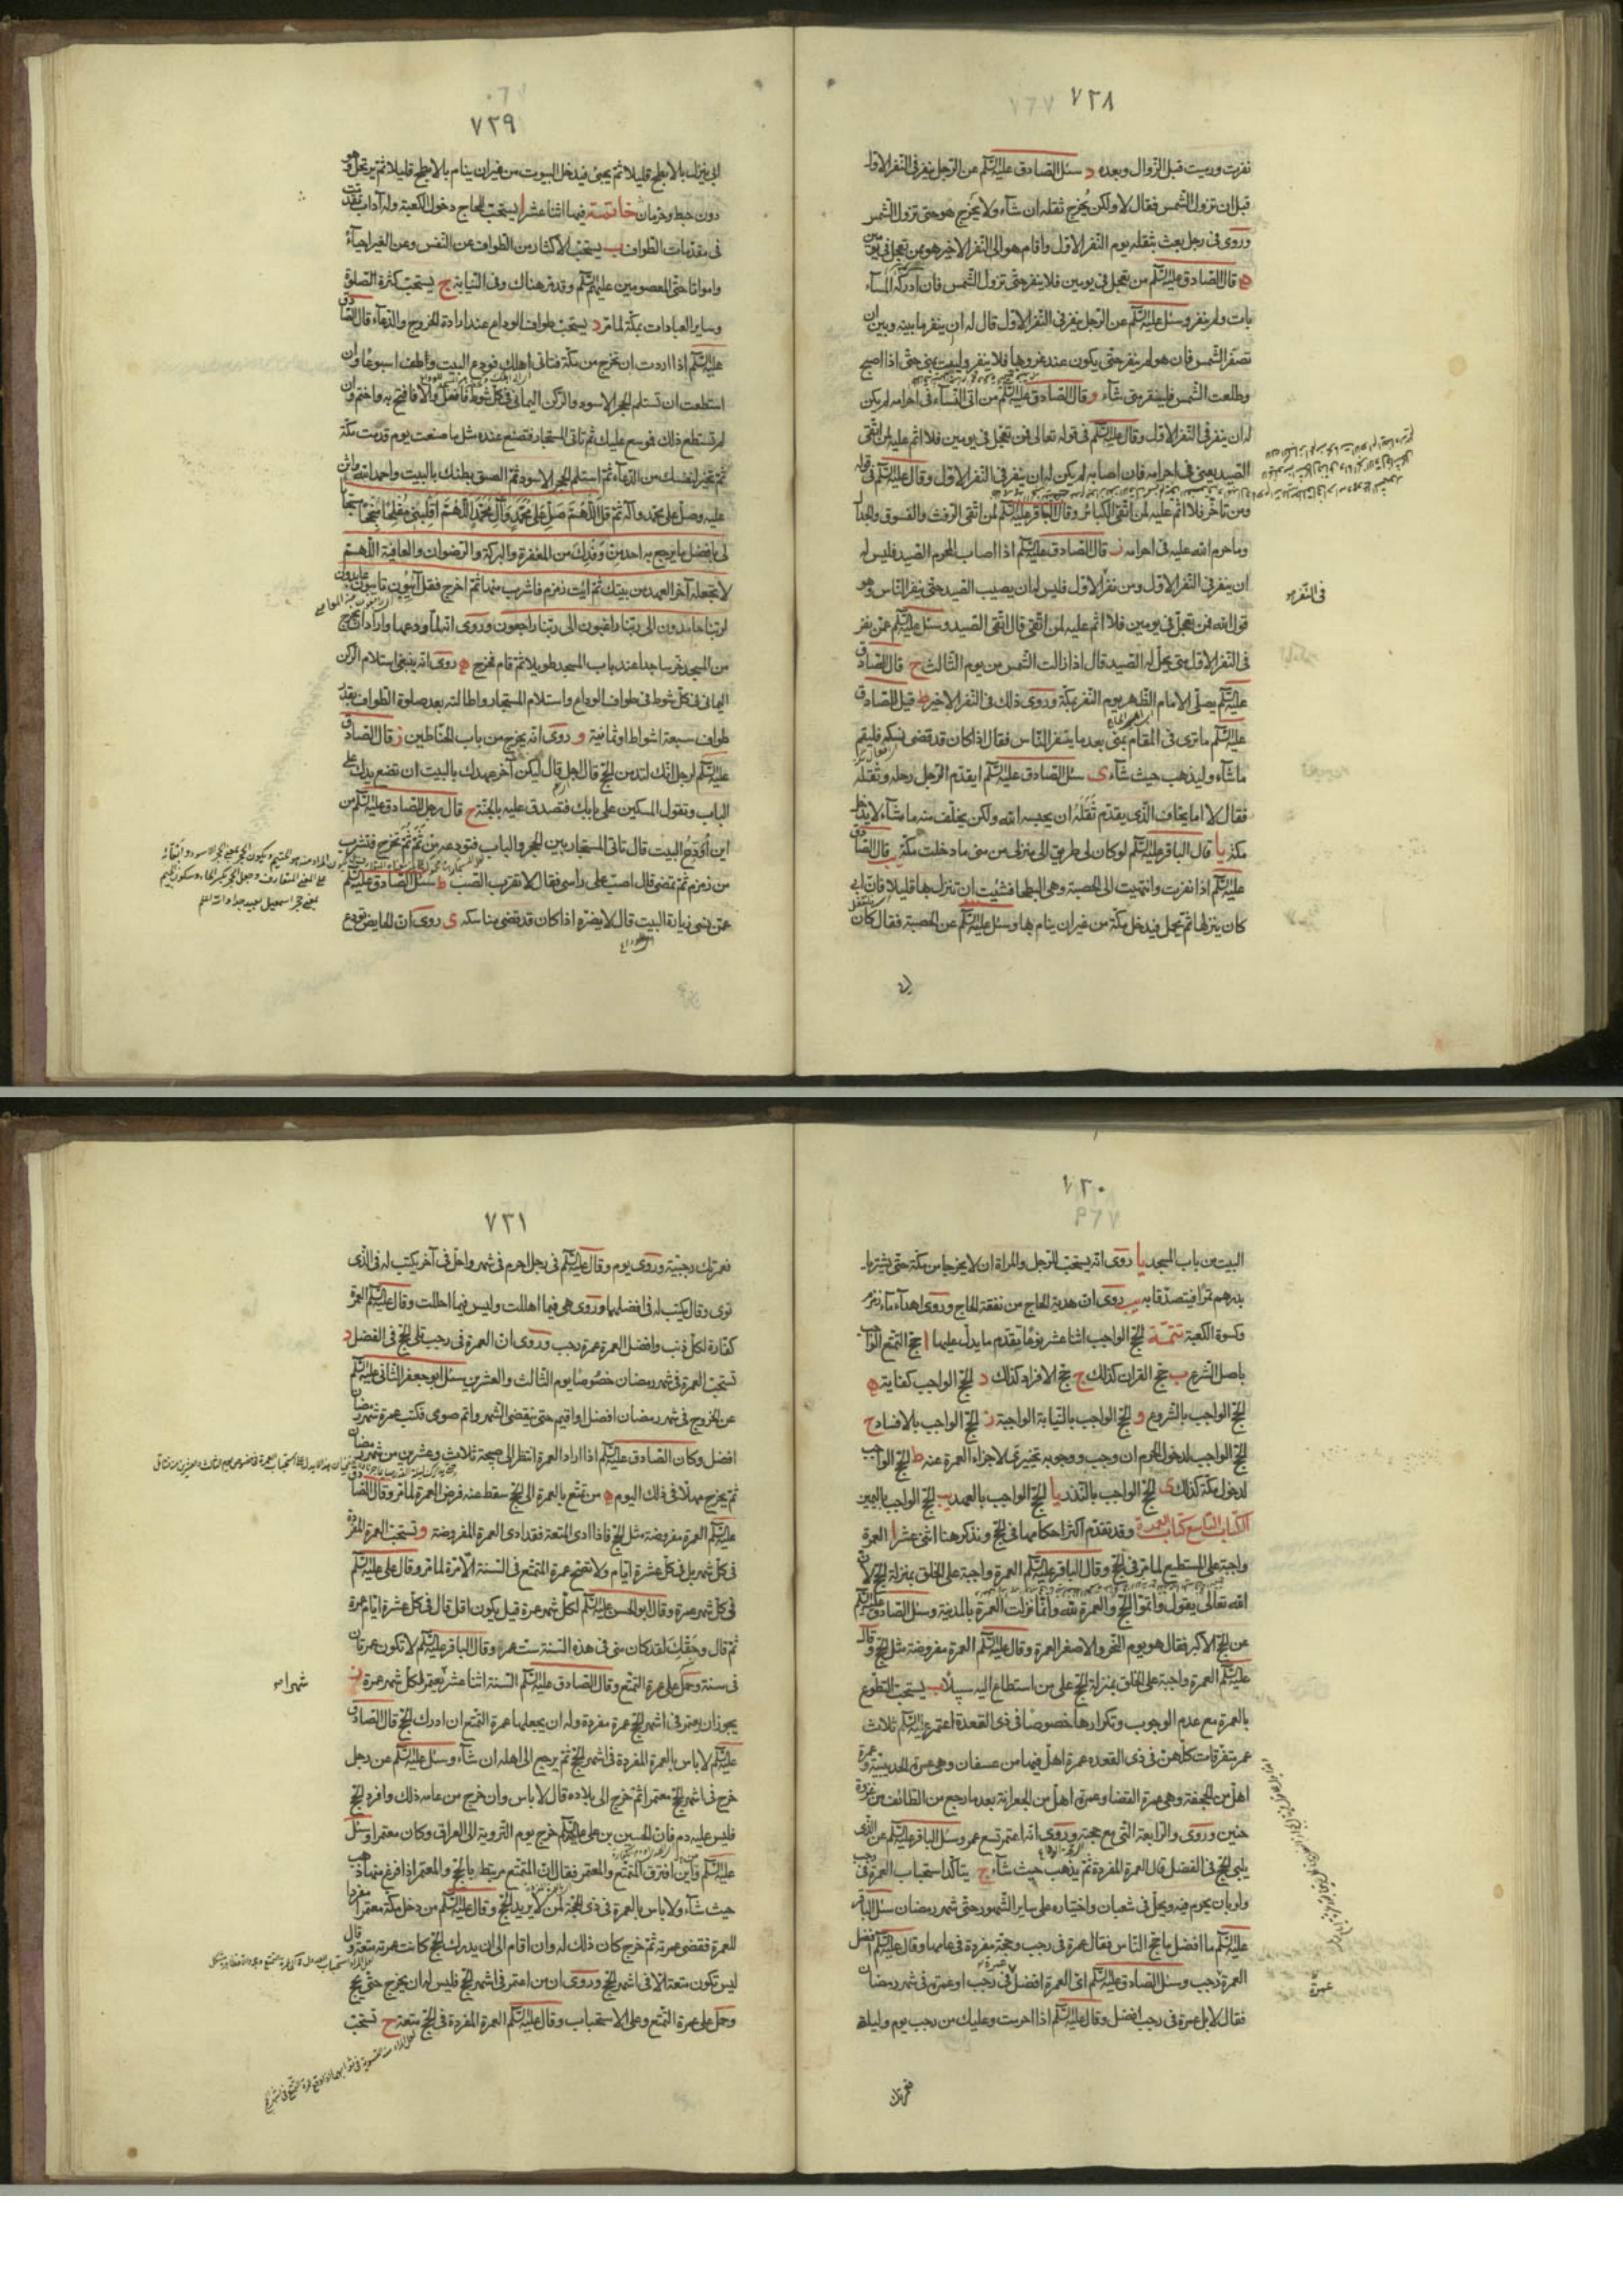 ٧٢٨
نفرت ورميت قبل الزوال وبعده د سئل الصادق عليه السلم عن الرجل ينفر فى النفر الاول
قبل ان تزول الشمس فقال لا ولكن يخرج ثقله ان شآء ولا يخرج هو حتى تزول الشمس
وروى فى رجل بعث بثقله يوم النفر الاول واقام هو الى النفر الاخير هو ممن تعجل فى يومين
ه قال الصادق عليه السلم من تعجل فى يومين فلا ينفر حتى تزول الشمس فان ادركه المسآء
بات ولم ينفر وسئل عليه السلم عن الرجل ينفر فى النفر الاول قال له ان ينفر ما بينه وبين ان
تصفر الشمس فان هو لم ينفر حتى يكون عند غروبها فلا ينفر وليبت بمنى حتى اذا اصبح
وطلعت الشمس فلينفر متى شآء و وقال الصادق عليه السلم من اتى النسآء فى احرامه لم يكن
له ان ينفر فى النفر الاول وقال عليه السلم فى قوله تعالى فمن تعجل فى يومين فلا اثم عليه لمن اتقى
الصيد يعنى فى احرامه فان اصابه لم يكن له ان ينفر فى النفر الاول وقال عليه السلم فى قوله
ومن تاخر فلا اثم عليه لمن اتقى الكبائر وقال الباقر عليه السلم لمن اتقى الرفث والفسوق والجدال
وما حرم الله عليه فى احرامه ز قال الصادق عليه السلم اذا اصاب المحرم الصيد فليس له
ان ينفر فى النفر الاول ومن نفر الاول فليس له ان يصيب الصيد حتى ينفر الناس وهو
فى النفر
قول الله فمن تعجل فى يومين فلا اثم عليه لمن اتقى قال اتقى الصيد وسئل عليه السلم عمن نفر
فى النفر الاول متى يحل له الصيد قال اذا زالت الشمس من يوم الثالث ح قال الصادق
عليه السلم يصلى الامام الظهر يوم النفر بمكة وروى ذلك فى النفر الاخير ط قيل للصادق
عليه السلم ما ترى فى المقام بمنى بعد ما ينفر الناس فقال اذا كان قد قضى نسكه فليقم
ما شآء وليذهب حيث شآء ى سئل الصادق عليه السلم ايقدم الرجل رحله وثقله
فقال لا اما يخاف الذى يقدم ثقله ان يحبسه الله ولكن يخلف منه ما شآء لا يدخل
مكة يا قال الباقر عليه السلم لو كان لى طريق الى منزلى من منى ما دخلت مكة يب قال الصادق
عليه السلم اذا نفرت وانتهيت الى الحصبة وهى البطحا فشئت ان تنزل بها قليلا فان ابى
كان ينزلها ثم يحمل فيدخل مكة من غير ان ينام بها وسئل عليه السلم عن الحصبة فقال كان
٧٢٩
ابى ينزل بالابطح قليلا ثم يجئ فيدخل البيوت من غير ان ينام بالابطح قليلا ثم يرتحل وهو
دون خبط وحرمان خاتمة فيها اثنا عشر ا يستحب للحاج دخول الكعبة وله آداب تقدمت
فى مقدمات الطواف ب يستحب الاكثار من الطواف عن النفس وعن الغير احيآء
وامواتا حتى المعصومين عليهم السلم وقد مر هناك وفى النيابة ج يستحب كثرة الصلوة
وساير العبادات بمكة لما مر د يستحب طواف الوداع عند ارادة الخروج والدعآء قال الصادق
عليه السلم اذا اردت ان تخرج من مكة فتاتى اهلك فودع البيت وطف اسبوعا وان
استطعت ان تستلم الحجر الاسود والركن اليمانى فى كل شوط فافعل والا فافتح به واختم وان
لم تستطع ذلك فوسع عليك ثم تاتى المستجار فتصنع عنده مثل ما صنعت يوم قدمت مكة
ثم تخير لنفسك من الدعآء ثم استلم الحجر الاسود ثم الصق بطنك بالبيت واحمد الله واثن
عليه وصل على محمد وآله ثم قل اللهم صل على محمد وآل محمد اللهم اقلبنى مفلحا منجحا مستجابا
لى بافضل ما يرجع به احد من وفدك من المغفرة والبركة والرضوان والعافية اللهم
لا تجعله آخر العهد من بيتك ثم ائت زمزم فاشرب منها ثم اخرج فقل آئبون تائبون عابدون
لربنا حامدون الى ربنا راغبون الى ربنا راجعون وروى انه لما ودعها واراد ان يخرج
من المسجد خر ساجدا عند باب المسجد طويلا ثم قام فخرج ه روى انه ينبغى استلام الركن
اليمانى فى كل شوط فى طواف الوداع واستلام المستجار واطالته بعد صلوة الطواف بقدر
طواف سبعة اشواط او ثمانية و روى انه يخرج من باب الحناطين ز قال الصادق
عليه السلم لرجل انك لتدمن الحج قال اجل قال ليكن آخر عهدك بالبيت ان تضع يدك على
الباب وتقول المسكين على بابك فتصدق عليه بالجنة ح قال رجل للصادق عليه السلم من
اين اودع البيت قال تاتى المستجار بين الحجر والباب فتودعه من ثم ثم تخرج فتشرب
من زمزم ثم تمضى قال اصب على راسى فقال لا تقرب الصب ط سئل الصادق عليه السلم
عمن نسى زيارة البيت قال لا يضره اذا كان قد قضى مناسكه ى روى ان الحايض تودع
٧٣٠
البيت من باب المسجد يا روى انه يستحب للرجل والمراة ان لا يخرجا من مكة حتى يشتريا
بدرهم تمرا فيتصدقا به يب روى ان هدية الحاج من نفقة الحاج وروى اهداء مآء زمزم
وكسوة الكعبة تتمة الحج الواجب اثنا عشر نوعا يتقدم ما يدل عليها ا حج التمتع الواجب
باصل الشرع ب حج القران كذلك ج حج الافراد كذلك د الحج الواجب كفاية ه
الحج الواجب بالشروع و الحج الواجب بالنيابة الواجبة ز الحج الواجب بالافساد ح
الحج الواجب لدخول الحرم ان وجب ووجوبه تخييرى لاجزاء العمرة عنه ط الحج الواجب
لدخول مكة كذلك ى الحج الواجب بالنذر يا الحج الواجب بالعهد يب الحج الواجب باليمين
الكتاب التاسع كتاب العمرة وقد تقدم اكثر احكامها فى الحج ونذكر هنا اثنى عشر ا العمرة
واجبة على المستطيع لما مر فى الحج وقال الباقر عليه السلم العمرة واجبة على الخلق بمنزلة الحج لان
الله تعالى يقول واتموا الحج والعمرة لله وانما نزلت العمرة بالمدينة وسئل الصادق عليه السلم
عن الحج الاكبر فقال هو يوم النحر والاصغر العمرة وقال عليه السلم العمرة مفروضة مثل الحج وقال
عليه السلم العمرة واجبة على الخلق بمنزلة الحج على من استطاع اليه سبيلا ب يستحب التطوع
بالعمرة مع عدم الوجوب وتكرارها خصوصا فى ذى القعدة اعتمر عليه السلم ثلاث
عمر متفرقات كلهن فى ذى القعده عمرة اهل فيها من عسفان وهى عمرة الحديبية وعمرة
اهل من الجحفة وهى عمرة القضا وعمرة اهل من الجعرانة بعد ما رجع من الطائف من غزوة
حنين وروى والرابعة التى مع حجته وروى انه اعتمر تسع عمر وسئل الباقر عليه السلم عن الذى
يلى الحج فى الفضل قال العمرة المفردة ثم يذهب حيث شآء ج يتاكد استحباب العمرة فى رجب
ولو بان يحرم فيه ويحل فى شعبان واختياره على ساير الشهور حتى شهر رمضان سئل الباقر
عليه السلم ما افضل ما حج الناس فقال عمرة فى رجب وحجة مفردة فى عامها وقال عليه السلم افضل
العمرة رجب وسئل الصادق عليه السلم اى العمرة افضل فى رجب او عمرة فى شهر رمضان
عمرة
فقال لا بل عمرة فى رجب افضل وقال عليه السلم اذا احرمت وعليك من رجب يوم وليلة
فعمرتك
٧٣١
فعمرتك رجبية وروى يوم وقال عليه السلم فى رجل احرم فى شهر واحل فى آخر يكتب له فى الذى
نوى وقال يكتب له فى افضلهما وروى هى فيما اهللت وليس فيما احللت وقال عليه السلم العمرة
كفارة لكل ذنب وافضل العمرة عمرة رجب وروى ان العمرة فى رجب تلى الحج فى الفضل د
تستحب العمرة فى شهر رمضان خصوصا يوم الثالث والعشرين سئل ابو جعفر الثانى عليه السلم
عن الخروج فى شهر رمضان افضل او اقيم حتى ينقضى الشهر واتم صومى فكتب عمرة شهر رمضان
افضل وكان الصادق عليه السلم اذا اراد العمرة انتظر الى صبيحة ثلاث وعشرين من شهر رمضان
ثم يخرج مهلا فى ذلك اليوم ه من تمتع بالعمرة الى الحج سقط عنه فرض العمرة لما مر وقال الصادق
عليه السلم العمرة مفروضة مثل الحج فاذا ادى المتعة فقد ادى العمرة المفروضة و وتستحب العمرة المفردة
فى كل شهر بل فى كل عشرة ايام ولا تصح عمرة التمتع فى السنة الا مرة لما مر وقال على عليه السلم
فى كل شهر عمرة وقال ابو الحسن عليه السلم لكل شهر عمرة قيل يكون اقل قال فى كل عشرة ايام عمرة
ثم قال وحقك لقد كان منى فى هذه السنة ست عمر وقال الباقر عليه السلم لا تكون عمرتان
فى سنة وحمل على عمرة التمتع وقال الصادق عليه السلم السنة اثنا عشر يعتمر لكل شهر عمرة ز
شهرا
يجوز ان يعتمر فى اشهر الحج عمرة مفردة وله ان يجعلها عمرة التمتع ان ادرك الحج قال الصادق
عليه السلم لا باس بالعمرة المفردة فى اشهر الحج ثم يرجع الى اهله ان شآء وسئل عليه السلم عن رجل
خرج فى اشهر الحج معتمرا ثم خرج الى بلاده قال لا باس وان خرج من عامه ذلك وافرد الحج
فليس عليه دم فان الحسين بن على عليهم السلم خرج يوم التروية الى العراق وكان معتمرا وسئل
عليه السلم واين افترق المتمتع والمعتمر فقال ان المتمتع مرتبط بالحج والمعتمر اذا فرغ منها ذهب
حيث شآء ولا باس بالعمرة فى ذى الحجة لمن لا يريد الحج وقال عليه السلم من دخل مكة معتمرا مفردا
للعمرة فقضى عمرته ثم خرج كان ذلك له وان اقام الى ان يدرك الحج كانت عمرته متعة وقال
ليس تكون متعة الا فى اشهر الحج وروى ان من اعتمر فى اشهر الحج فليس له ان يخرج حتى يحج
وحمل على عمرة التمتع وعلى الاستحباب وقال عليه السلم العمرة المفردة فى الحج متعة ح تستحب